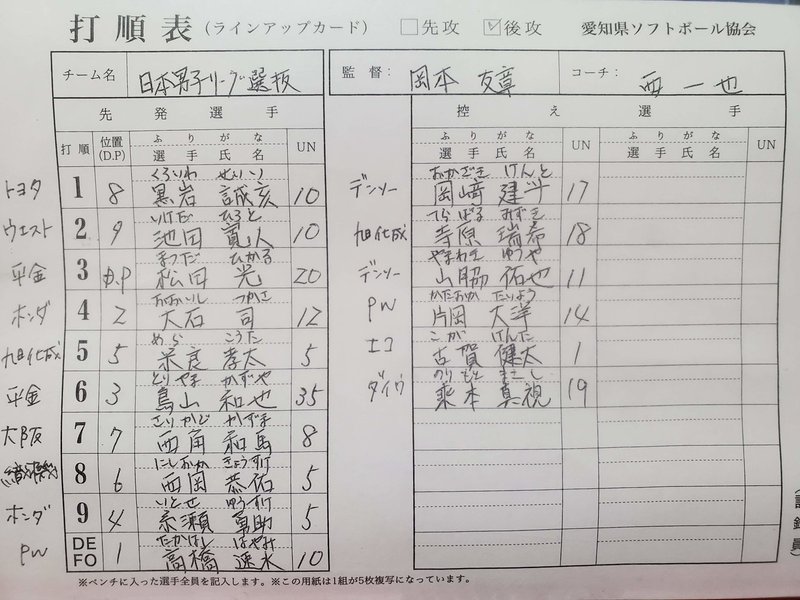 打順表 (ラインアップカード) □先攻 ☑後攻 愛知県ソフトボール協会
チーム名 日本男子リーグ選抜 監督: 岡本 友章 コーチ: 西 一也
先発選手 控え選手
打順 位置(D.P) ふりがな 選手氏名 UN ふりがな 選手氏名 UN ふりがな 選手氏名 UN
くろいわ せいや おかざき けんと
トヨタ 1 8 黒岩 誠亥 10 デンソー 岡﨑 建斗 17
いけだ ひろと てらばる みずき
ウエスト 2 9 池田 寛人 10 旭化成 寺原 瑞希 18
まつだ ひかる やまわき ゆうや
平金 3 D.P 松田 光 20 デンソー 山脇 佑也 11
おおいし つかさ かたおか たいよう
ホンダ 4 2 大石 司 12 PW 片岡 大洋 14
めら こうた こが けんた
旭化成 5 5 米良 孝太 5 エコ 古賀 健太 1
とりやま かずや のりもと まさし
平金 6 3 鳥山 和也 35 ダイワ 乗本 真視 19
さいかど かずま
大阪 7 7 西角 和馬 8
にしおか きょうすけ
織機 8 6 西岡 恭佑 5
いとせ ゆうすけ
ホンダ 9 4 糸瀬 勇助 5
たかはし はやみ
PW DEFO 1 高橋 速水 10
※ベンチに入った選手全員を記入します。※この用紙は1組が5枚複写になっています。
(記録員)